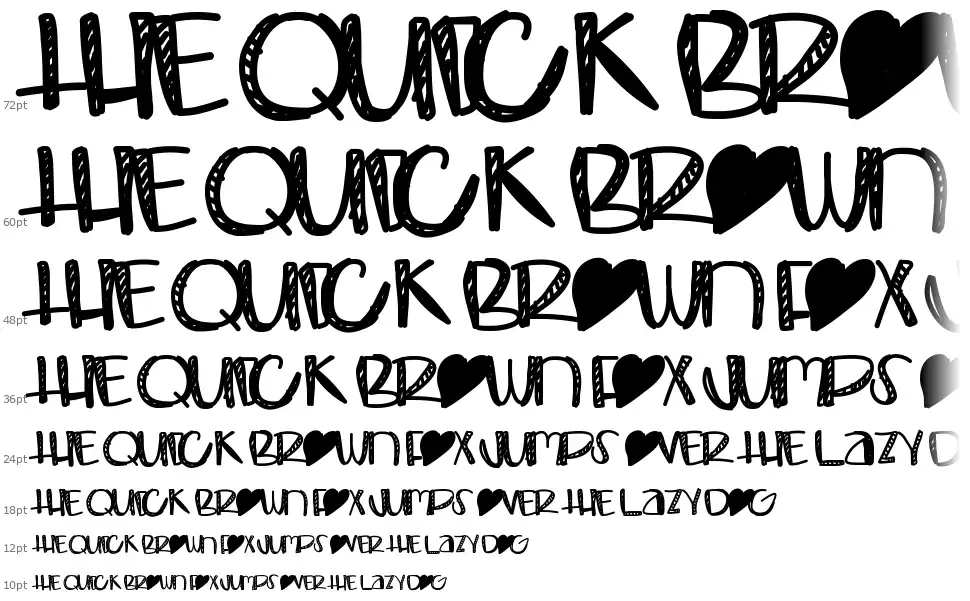 72pt THE QUICK BRO
60pt THE QUICK BROWN
48pt THE QUICK BROWN FOX
36pt THE QUICK BROWN FOX JUMPS
24pt THE QUICK BROWN FOX JUMPS OVER THE LAZY D
18pt THE QUICK BROWN FOX JUMPS OVER THE LAZY DOG
12pt THE QUICK BROWN FOX JUMPS OVER THE LAZY DOG
10pt THE QUICK BROWN FOX JUMPS OVER THE LAZY DOG